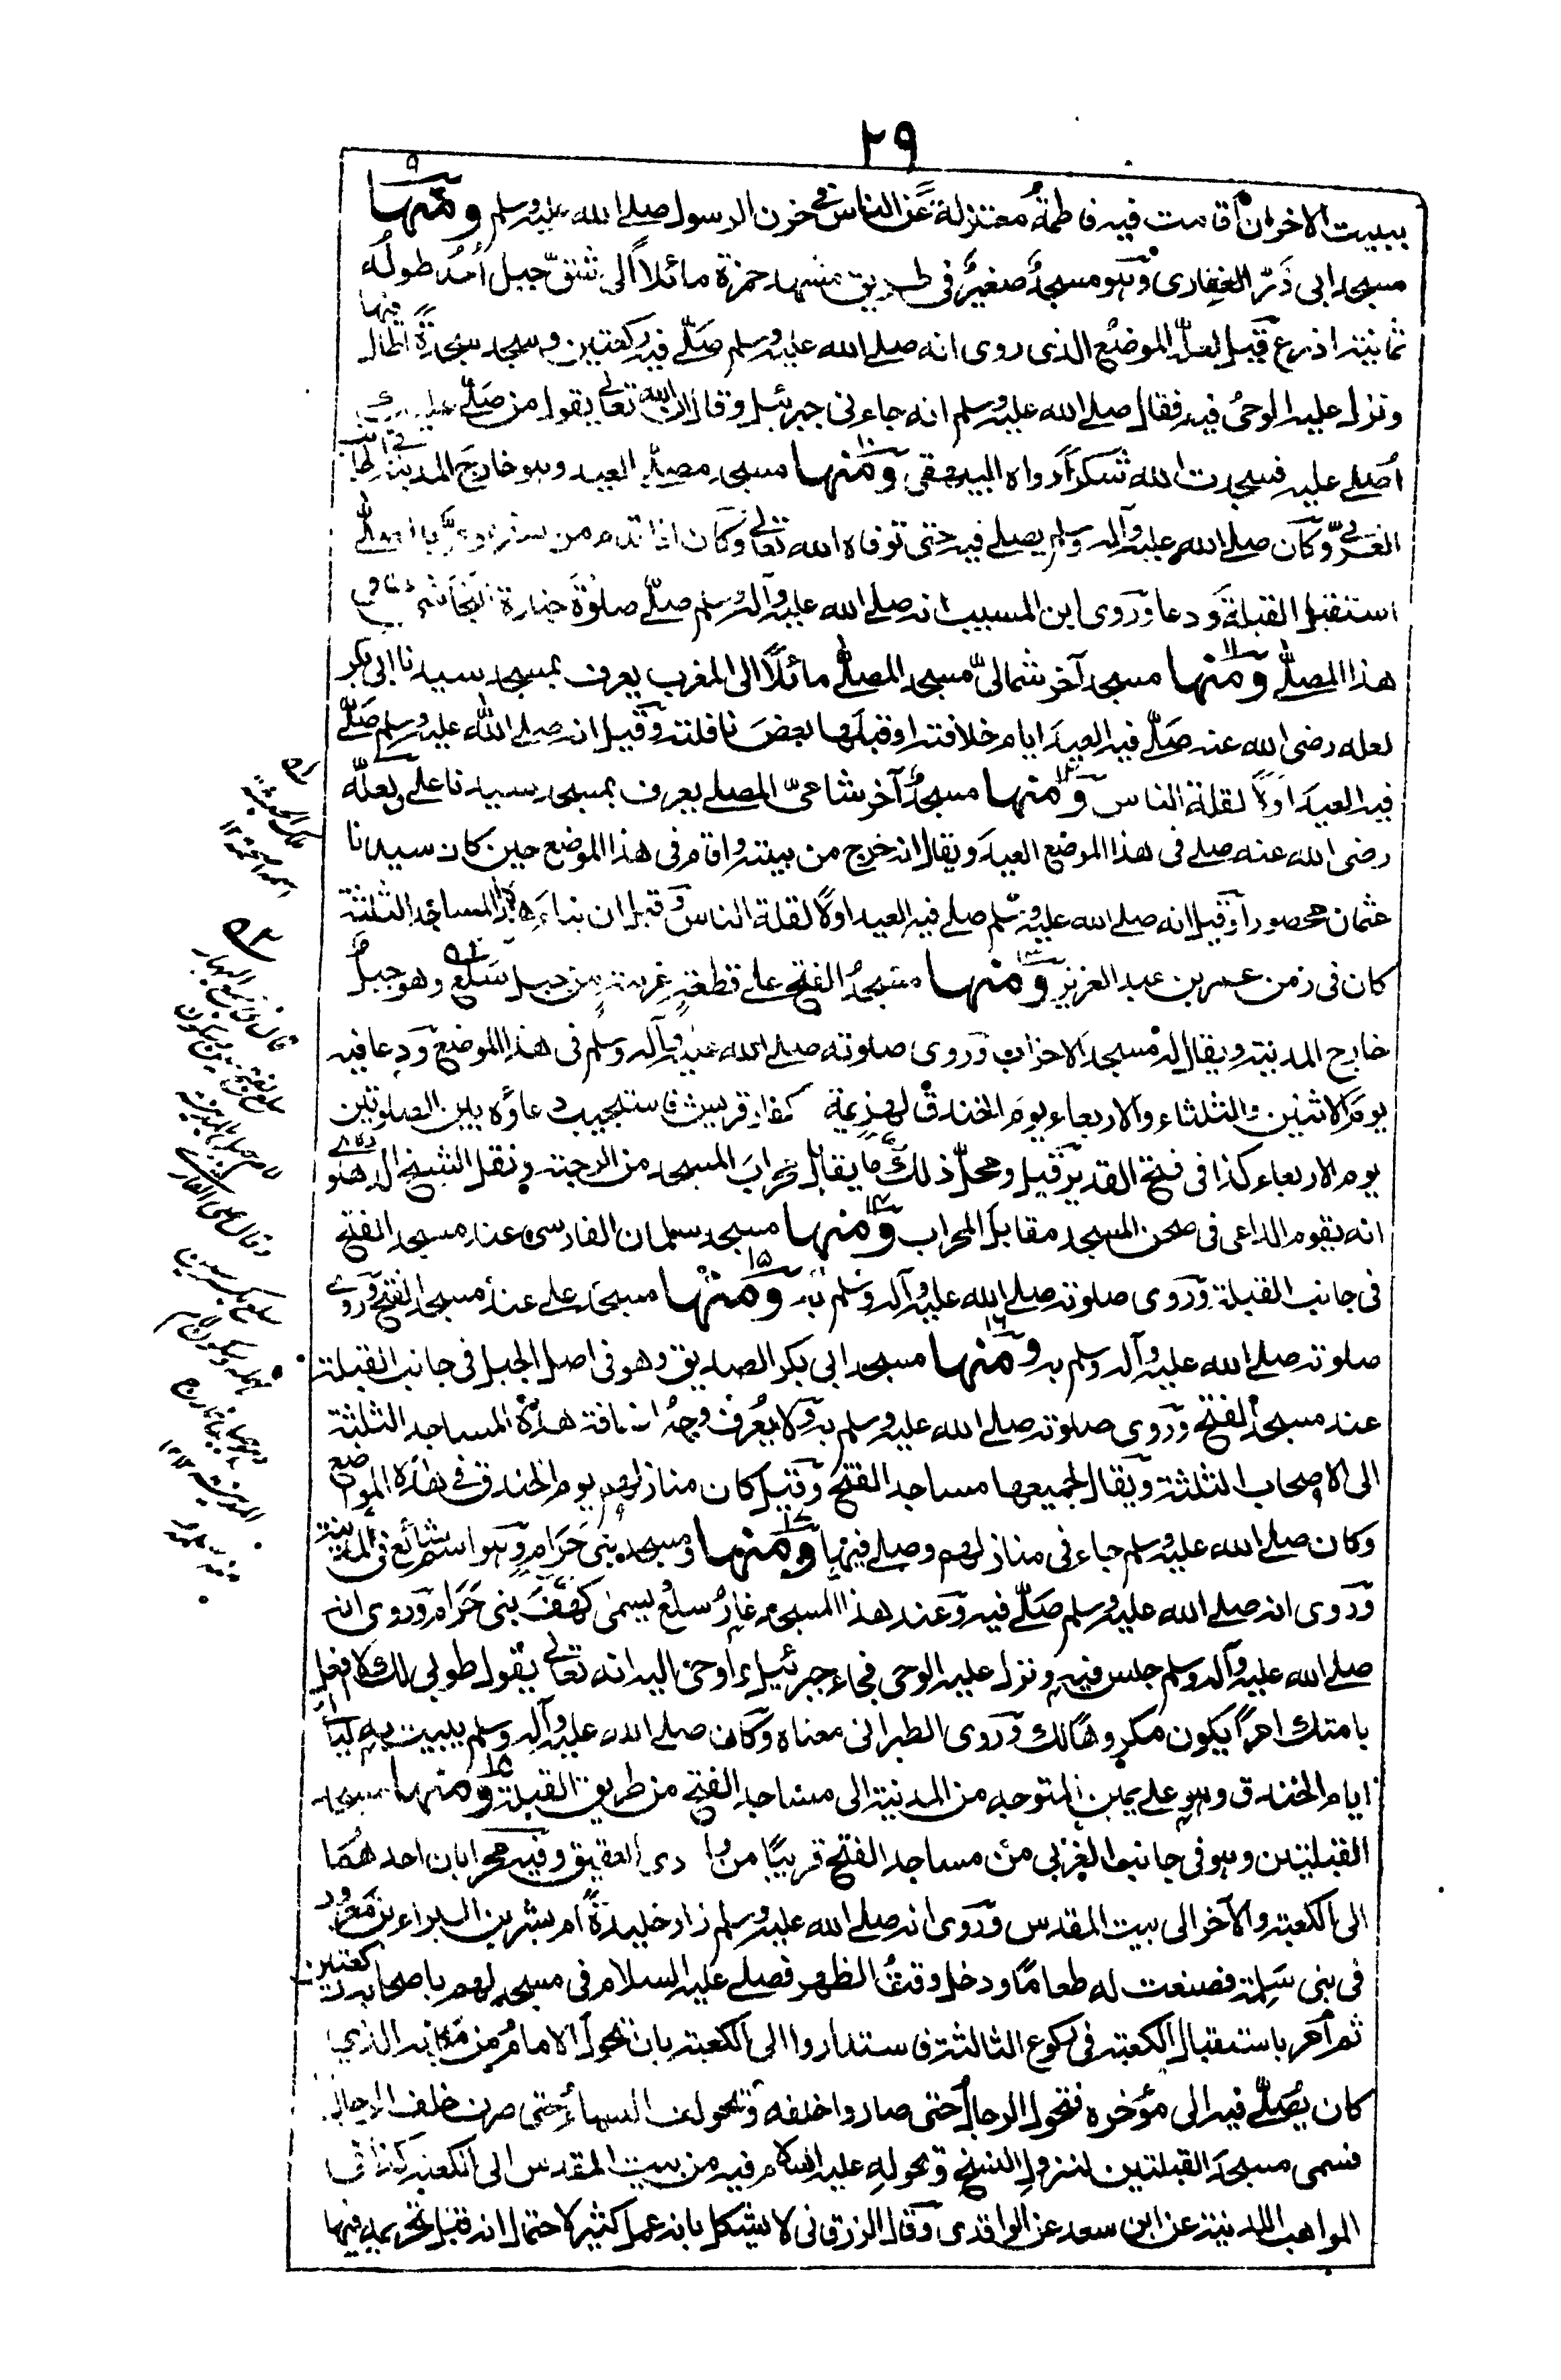 ٢٩
ببيت الاخران اقامت فيه فاطمة معتزلة عن الناس في حزن الرسول صلے الله عليه وسلم ومنها ٩
مسجد ابى ذرّ الغفارى وهو مسجدٌ صغيرٌ فى طريق مشهد حمزة مائلاً الى شقّ جبل اُحُد طولُه
ثمانية اذرع قيل لعلّ الموضع الذى روى انه صلے الله عليه وسلم صلّے فيه ركعتين وسجد سجدةً اطال فيها
ونزل عليه الوحىُ فيه فقال صلے الله عليه وسلم انه جاءنى جبرئيل وقال ان الله تعالٰے يقول من صلّے عليك
اُصلے عليه فسجدت لله شكراً رواه البيهقى ومنها ١٠ مسجد مصلّے العيد وهو خارج المدينة فى الجانب
الغربىّ وكان صلے الله عليه وآله وسلم يصلے فيه حتى توفاه الله تعالٰے وكان اذا قدم من سفر بالمصلّے
استقبل القبلة ودعا وروى ابن المسيب انه صلے الله عليه وآله وسلم صلّے صلوٰة جنازة النجاشى فى
هذا المصلّے ومنها ١١ مسجد آخر شمالىّ مسجد المصلّے مائلاً الى المغرب يعرف بمسجد سيدنا ابى بكر
لعله رضى الله عنه صلّے فيه العيد ايام خلافته او قبلها بعض نافلته وقيل انه صلے الله عليه وسلم صلّے
فيه العيد اولاً لقلة الناس ومنها ١٢ مسجدٌ آخر شامىّ المصلے يعرف بمسجد سيدنا على ولعلّه
رضى الله عنه صلے فى هذا الموضع العيد ويقال انه خرج من بيته واقام فى هذا الموضع حين كان سيدنا
عثمان محصوراً وقيل انه صلے الله عليه وسلم صلے فيه العيد اولاً لقلة الناس وقيل ان بناء هذه المساجد الثلثة
كان فى زمن عمر بن عبد العزيز ومنها ١٣ مسجدُ الفتح علے قطعةٍ غربيةٍ من جبل سَلْعٍ وهو جبلٌ
خارج المدينة ويقال له مسجد الاحزاب وروى صلوته صلے الله عليه وآله وسلم فى هذا الموضع ودعا فيه
يوم الاثنين والثلثاء والاربعاء يوم الخندق لهزيمة كفار قريش فاستجيب دعاؤه بين الصلوتين
يوم الاربعاء كذا فى فتح القدير قيل ومحلّ ذلك ما يقابل محراب المسجد من الرحبة ونقل الشيخ الدهلوى
انه يقوم الداعى فى صحن المسجد مقابل المحراب ومنها ١٤ مسجد سلمان الفارسى عند مسجد الفتح
فى جانب القبلة وروى صلوته صلے الله عليه وآله وسلم به ومنها ١٥ مسجد على عند مسجد الفتح وروى
صلوته صلے الله عليه وآله وسلم به ومنها ١٦ مسجد ابى بكر الصديق وهو فى اصل الجبل فى جانب القبلة
عند مسجد الفتح وروى صلوته صلے الله عليه وسلم به ولا يُعرف وجهُ اضافة هذه المساجد الثلثة
الى الاصحاب الثلثة ويقال لجميعها مساجد الفتح وقيل كان منازلهم يوم الخندق فى هذه المواضع
وكان صلے الله عليه وسلم جاء فى منازلهم وصلے فيها ومنها ١٧ مسجد بنى حَرَام وهو اسم شائع فى المدينة
وروى انه صلے الله عليه وسلم صلّے فيه وعند هذا المسجد غارُ سلع يسمى كهف بنى حرام وروى انه
صلے الله عليه وآله وسلم جلس فيه ونزل عليه الوحى فجاء جبرئيل واوحى اليه انه تعالٰے يقول طوبى لك لا افعل
بامتك امراً يكون مكروهاً لك وروى الطبرانى معناه وكان صلے الله عليه وآله وسلم يبيت به ليالى
ايام الخندق وهو علے يمين المتوجه من المدينة الى مساجد الفتح من طريق القبلة ومنها ١٨ مسجد
القبلتين وهو فى جانب الغربى من مساجد الفتح قريبًا من وادى العقيق وفيه محرابان احدهُما
الى الكعبة والآخر الى بيت المقدس وروى انه صلے الله عليه وسلم زار ام بشر بن البراء بن معرور
فى بنى سَلِمة فصنعت له طعامًا ودخل وقتُ الظهر فصلے عليه السلام فى مسجد لهم باصحابه ركعتين
ثم اُمر باستقبال الكعبة فى ركوع الثالثة فاستداروا الى الكعبة بان تحوّل الامامُ من مكانه الذى
كان يُصلّے فيه الى مؤخره فتحول الرجالُ حتى صاروا خلفه وتحولت النساءُ حتى صرن خلف الرجال
فسمى مسجد القبلتين لنزول النسخ وتحوله عليه السلام فيه من بيت المقدس الى الكعبة كذا فى
المواهب اللدنية عن ابن سعد عن الواقدى وقال الزرقانى لا يشكل بانه عمل كثير لاحتمال انه قبل تحريمه فيها